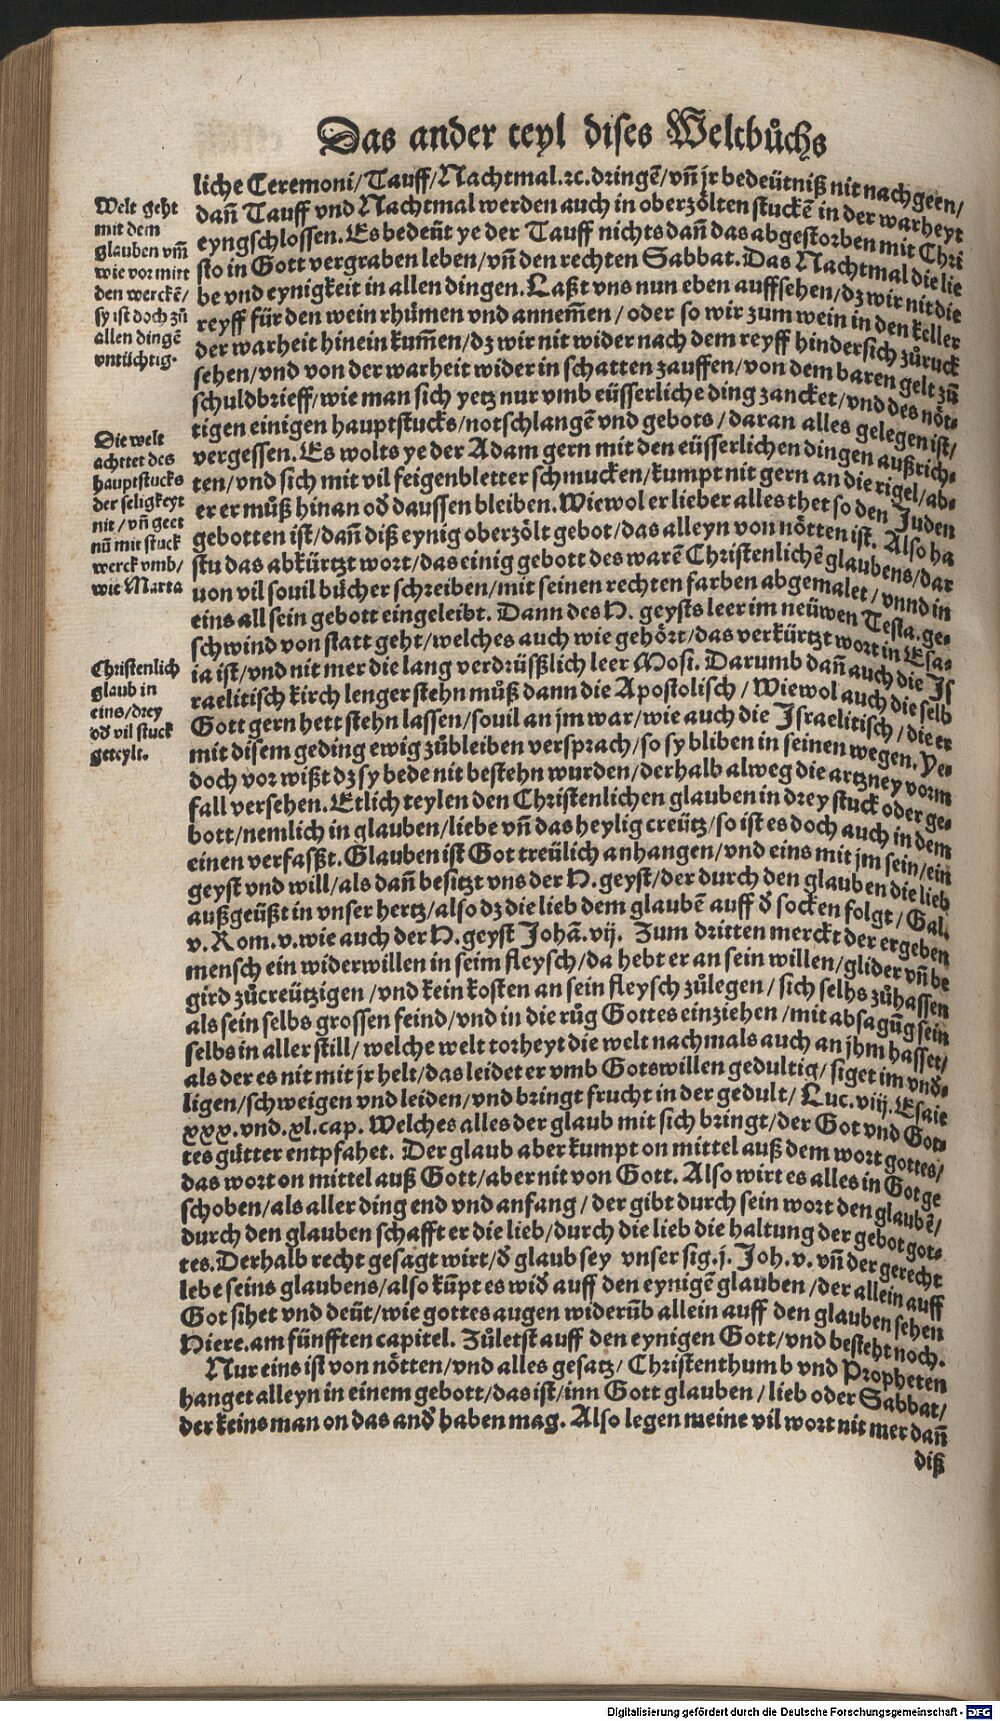 Das ander teyl dises Weltbůchs
liche Ceremoni/Tauff/Nachtmal.ꝛc.dringẽ/vñ jr bedeütniß nit nachgeen/
dañ Tauff vnd Nachtmal werden auch in oberzölten stuckẽ in der warheyt
eyngschlossen. Es bedeüt ye der Tauff nichts dañ das abgestorben mit Chri
sto in Gott vergraben leben/vñ den rechten Sabbat. Das Nachtmal die lie
be vnd eynigkeit in allen dingen. Laßt vns nun eben auffsehen/dz wir nit die
reyff für den wein rhůmen vnd annemẽn/oder so wir zum wein in den keller
der warheit hinein kum̃en/dz wir nit wider nach dem reyff hindersich zůruck
sehen/vnd von der warheit wider in schatten zauffen/von dem baren gelt zů
schuldbrieff/wie man sich yetz nur vmb eüsserliche ding zancket/vnd des nöt⸗
tigen einigen hauptstucks/notschlangẽ vnd gebots/daran alles gelegen ist/
vergessen. Es wolts ye der Adam gern mit den eüsserlichen dingen außrich⸗
ten/vnd sich mit vil feigenbletter schmucken/kumpt nit gern an die rigel/ab⸗
er er můß hinan oð daussen bleiben. Wiewol er lieber alles thet so den Juden
gebotten ist/dañ diß eynig oberzölt gebot/das alleyn von nötten ist. Also ha
stu das abkürtzt wort/das einig gebott des warẽ Christenlichẽ glaubens/dar
uon vil souil bůcher schreiben/mit seinen rechten farben abgemalet/vnnd in
eins all sein gebott eingeleibt. Dann des H. geysts leer im neüwen Testa. ge⸗
schwind von statt geht/welches auch wie gehört/das verkürtzt wort in Esa⸗
ia ist/vnd nit mer die lang verdrüßlich leer Mosi. Darumb dañ auch die Is
raelitisch kirch lenger stehn můß dann die Apostolisch/Wiewol auch die selb
Gott gern hett stehn lassen/souil an jm war/wie auch die Israelitisch/die er
mit disem geding ewig zůbleiben versprach/so sy bliben in seinen wegen. Ye⸗
doch vor wißt dz sy bede nit bestehn wurden/derhalb alweg die artzney vorm
fall versehen. Etlich teylen den Christenlichen glauben in drey stuck oder ge⸗
bott/nemlich in glauben/liebe vñ das heylig creütz/so ist es doch auch in dem
einen verfaßt. Glauben ist Got treülich anhangen/vnd eins mit jm sein/ein
geyst vnd will/als dañ besitzt vns der H. geyst/der durch den glauben die lieb
außgeüßt in vnser hertz/also dz die lieb dem glaubẽ auff ð socken folgt/Gal.
v. Rom.v.wie auch der H.geyst Johã.vij. Zum dritten merckt der ergeben
mensch ein widerwillen in seim fleysch/da hebt er an sein willen/glider vñ be
gird zůcreützigen/vnd kein kosten an sein fleysch zůlegen/sich selbs zůhassen
als sein selbs grossen feind/vnd in die růg Gottes einziehen/mit absagũg sein
selbs in aller still/welche welt torheyt die welt nachmals auch an jhm hasset/
als der es nit mit jr helt/das leidet er vmb Gotswillen gedultig/siget im vnd⸗
ligen/schweigen vnd leiden/vnd bringt frucht in der gedult/Luc.viij.Esaie
xxx.vnd.xl.cap. Welches alles der glaub mit sich bringt/der Got vnd Got⸗
tes gůtter entpfahet. Der glaub aber kumpt on mittel auß dem wort gottes/
das wort on mittel auß Gott/aber nit von Gott. Also wirt es alles in Got ge
schoben/als aller ding end vnd anfang/der gibt durch sein wort den glaubẽ/
durch den glauben schafft er die lieb/durch die lieb die haltung der gebot got⸗
tes.Derhalb recht gesagt wirt/ð glaub sey vnser sig.j. Joh.v. vñ der gerecht
lebe seins glaubens/also kũpt es wið auff den eynigẽ glauben/der allein auff
Got sihet vnd deüt/wie gottes augen widerũb allein auff den glauben sehen
Hiere.am fünfften capitel. Zůletst auff den eynigen Gott/vnd besteht noch.
Nur eins ist von nötten/vnd alles gesatz/Christenthumb vnd Propheten
hanget alleyn in einem gebott/das ist/inn Gott glauben/lieb oder Sabbat/
der keins man on das anð haben mag. Also legen meine vil wort nit mer dañ
diß
Welt geht
mit dem
glauben vm̃
wie vor mitt
den werckẽ/
sy ist doch zů
allen dingẽ
vntüchtig.
Die welt
achttet des
hauptstucks
der seligkeyt
nit/vñ geet
nũ mit stuck
werck vmb/
wie Marta
Christenlich
glaub in
eins/drey
oð vil stuck
geteylt.
Digitalisierung gefördert durch die Deutsche Forschungsgemeinschaft - DFG